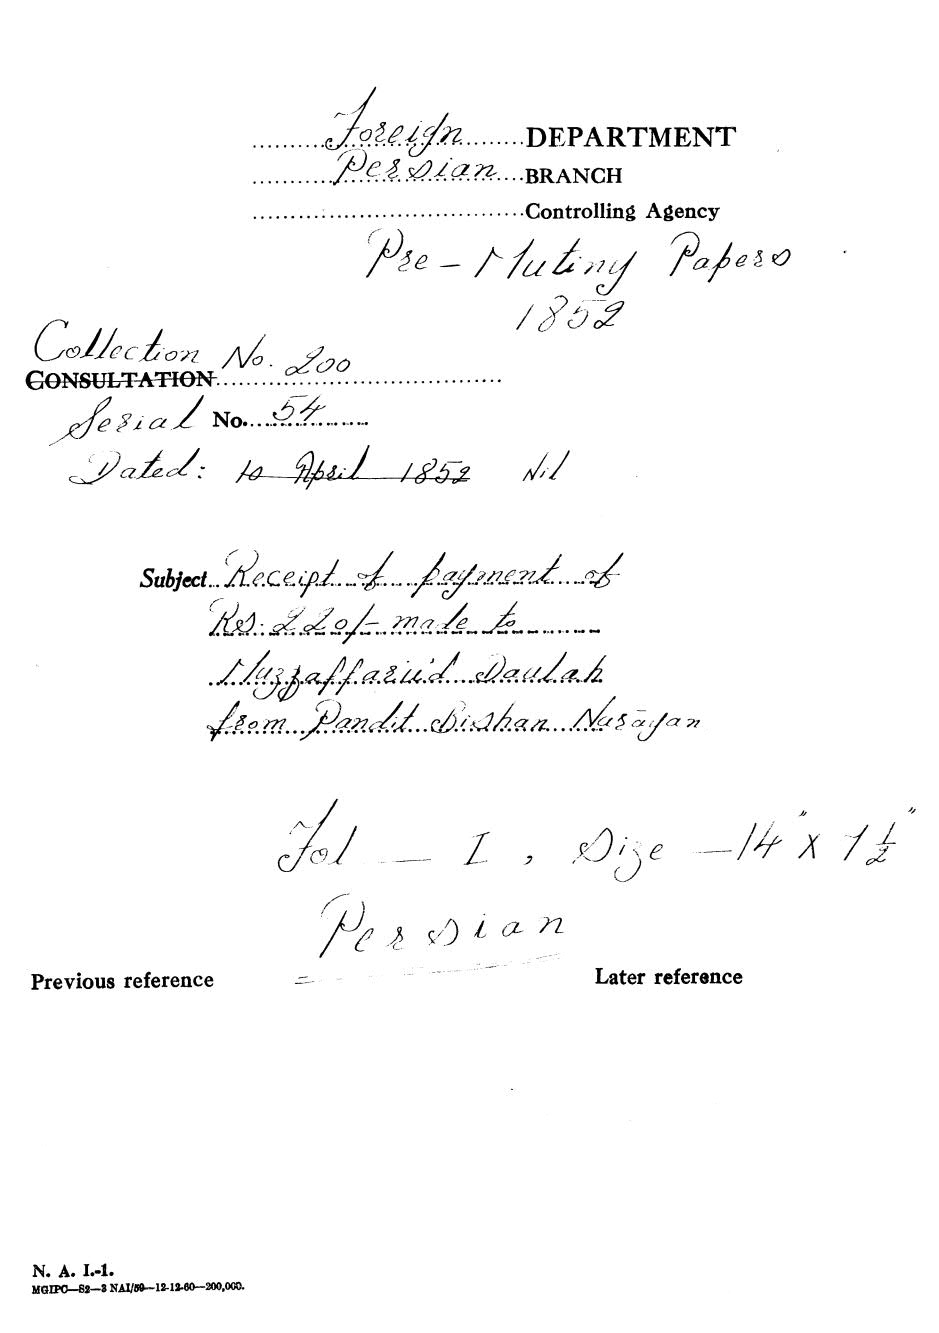 Foreign DEPARTMENT
Persian BRANCH
Controlling Agency
Pre-Mutiny Papers
1852
Collection No. 200
CONSULTATION
Serial No. 54
Dated: 10 April 1852 Nil
Subject Receipt of payment of
Rs. 220/- made to
Muzzaffariud Daulah
from Pandit Bishan Narāyan
Fol — I, Size — 14" X 7 1/2"
Persian
Previous reference Later reference
N. A. I.-1.
MGIPC—S2—3 NAI/59—12-12-60—200,000.